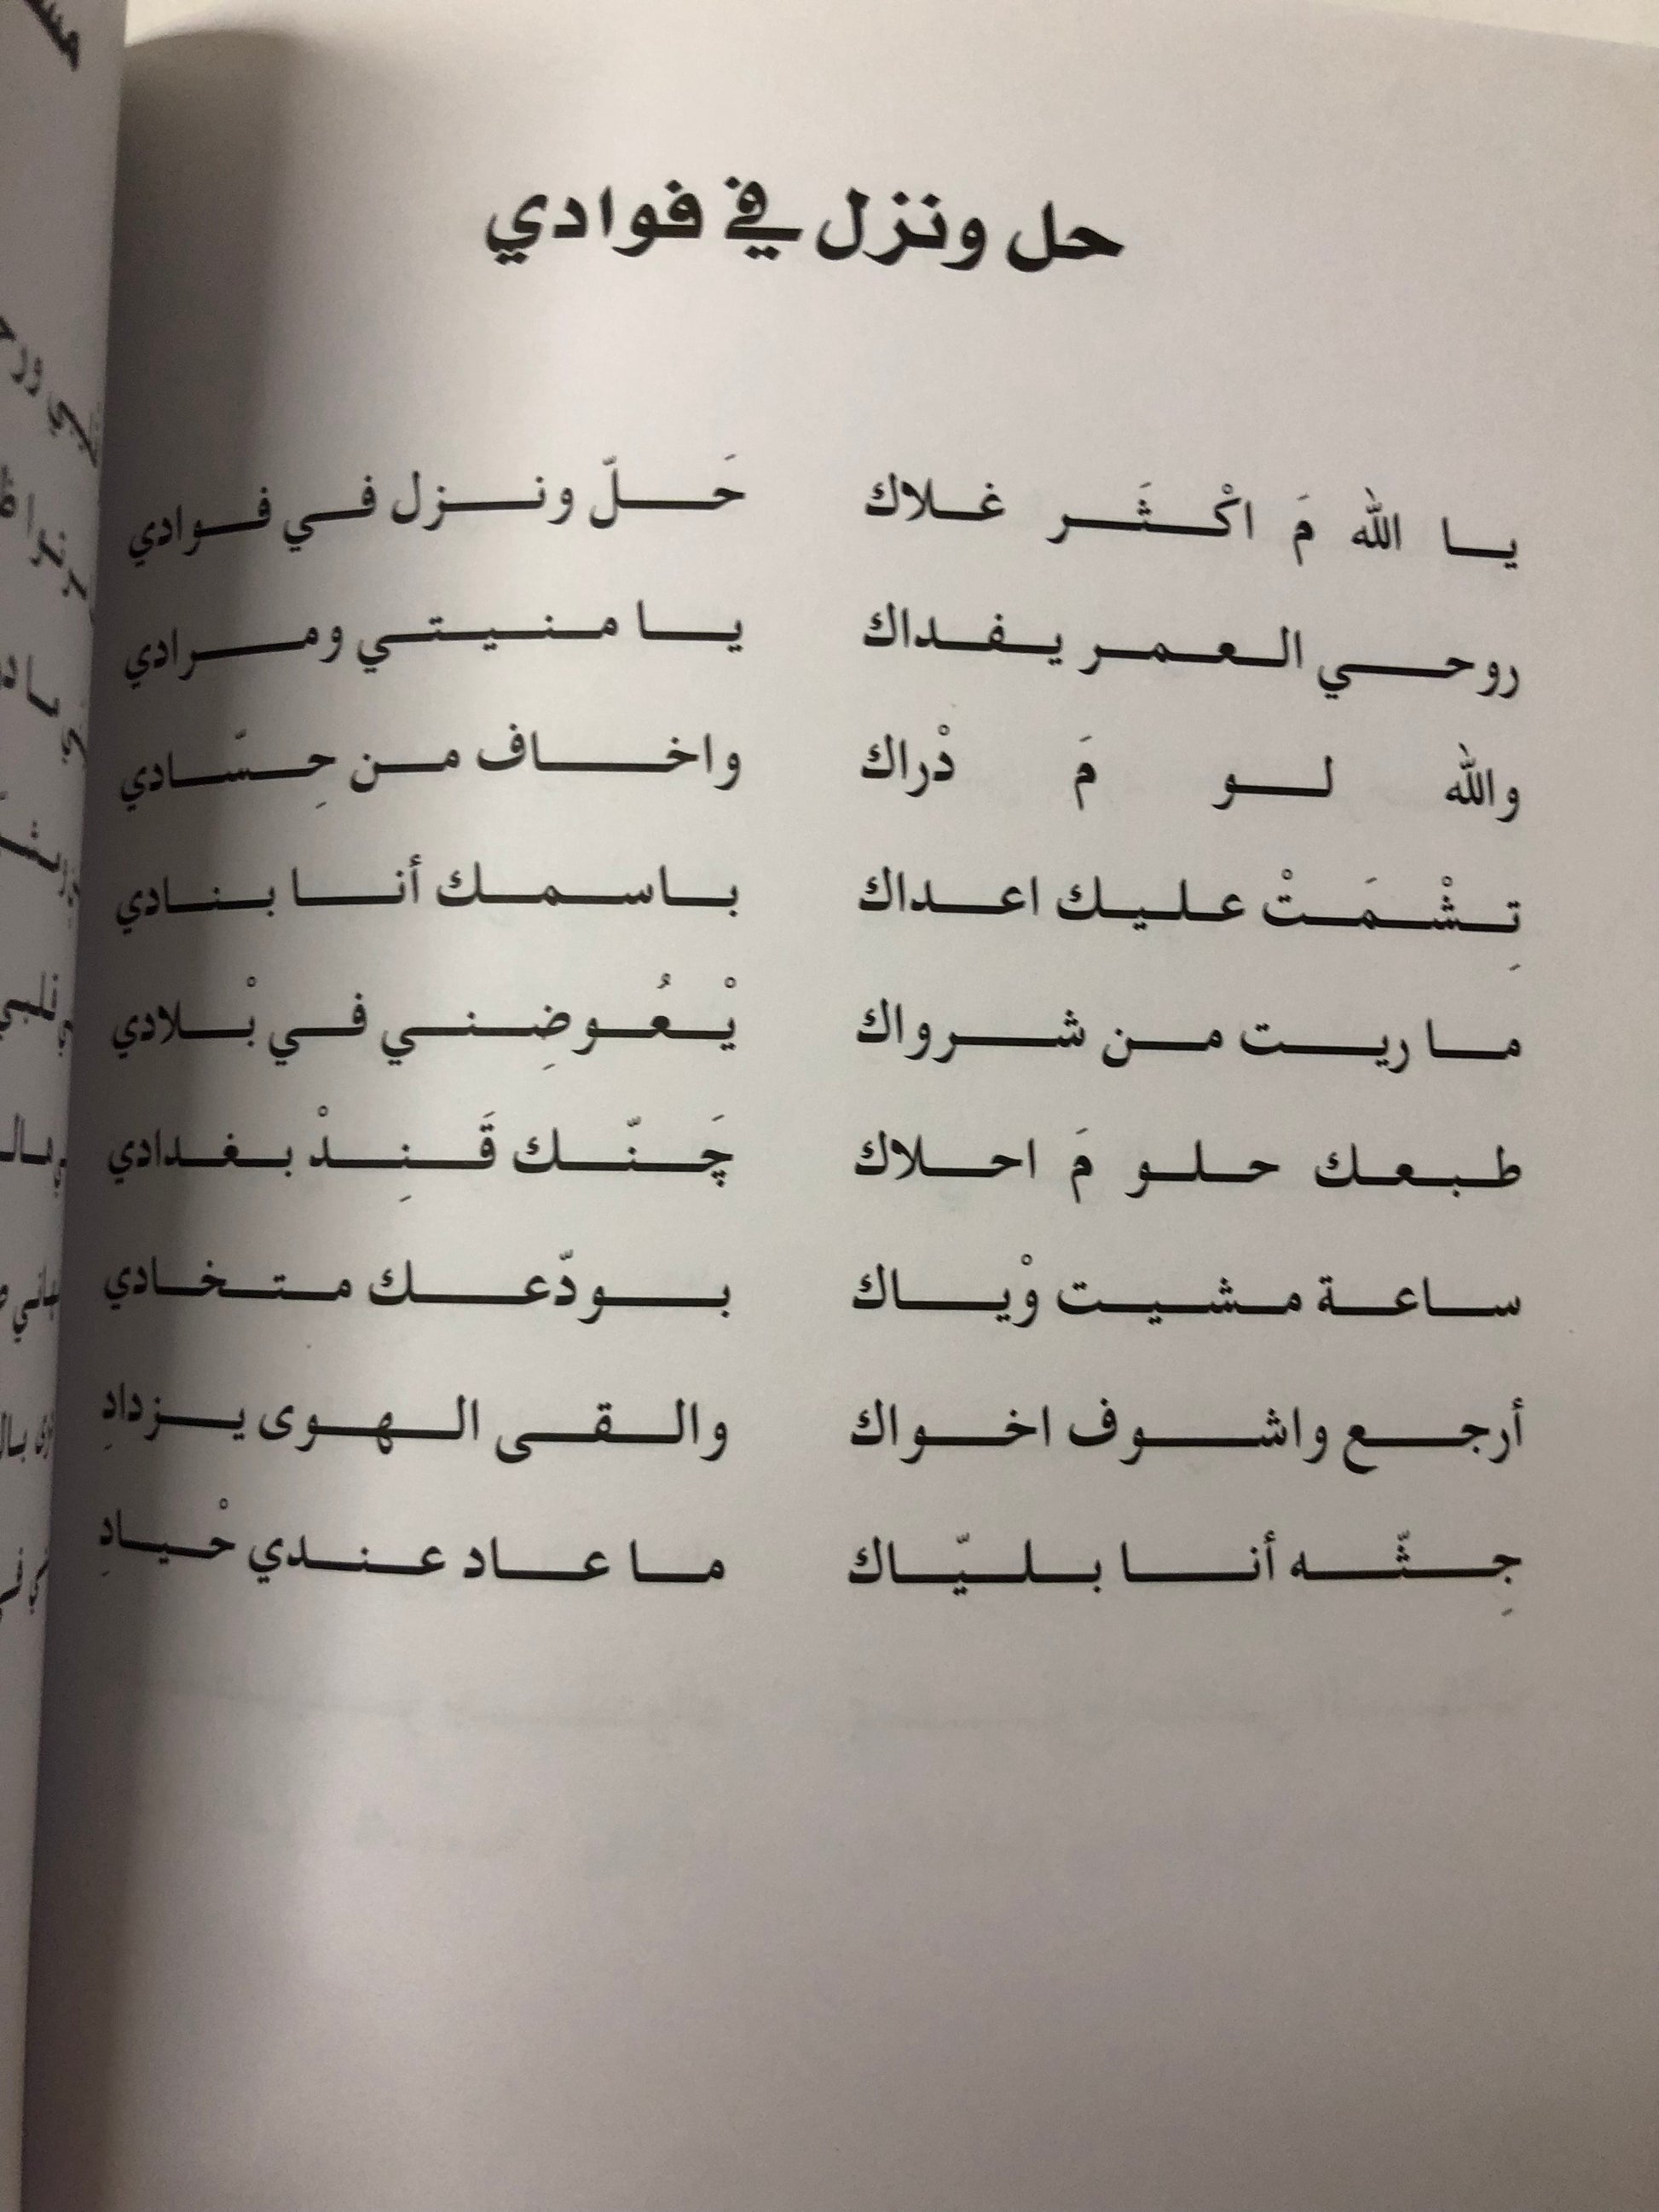 حل ونزل في فوادي
يا الله مَ اكْثَر غلاك حَلّ ونزل في فوادي
روحي العمر يفداك يا منيتي ومرادي
والله لو مَ دْراك واخاف من حِسّادي
تِشْمَتْ عليك اعداك باسمك أنا بنادي
ما ريت من شرواك يْعُوضِني في بْلادي
طبعك حلو مَ احلاك چَنّك قَنِدْ بغدادي
ساعة مشيت وْياك بودّعك متخادي
أرجع واشوف اخواك والقى الهوى يزدادِ
جِتّه أنا بليّاك ما عاد عندي حْيادِ